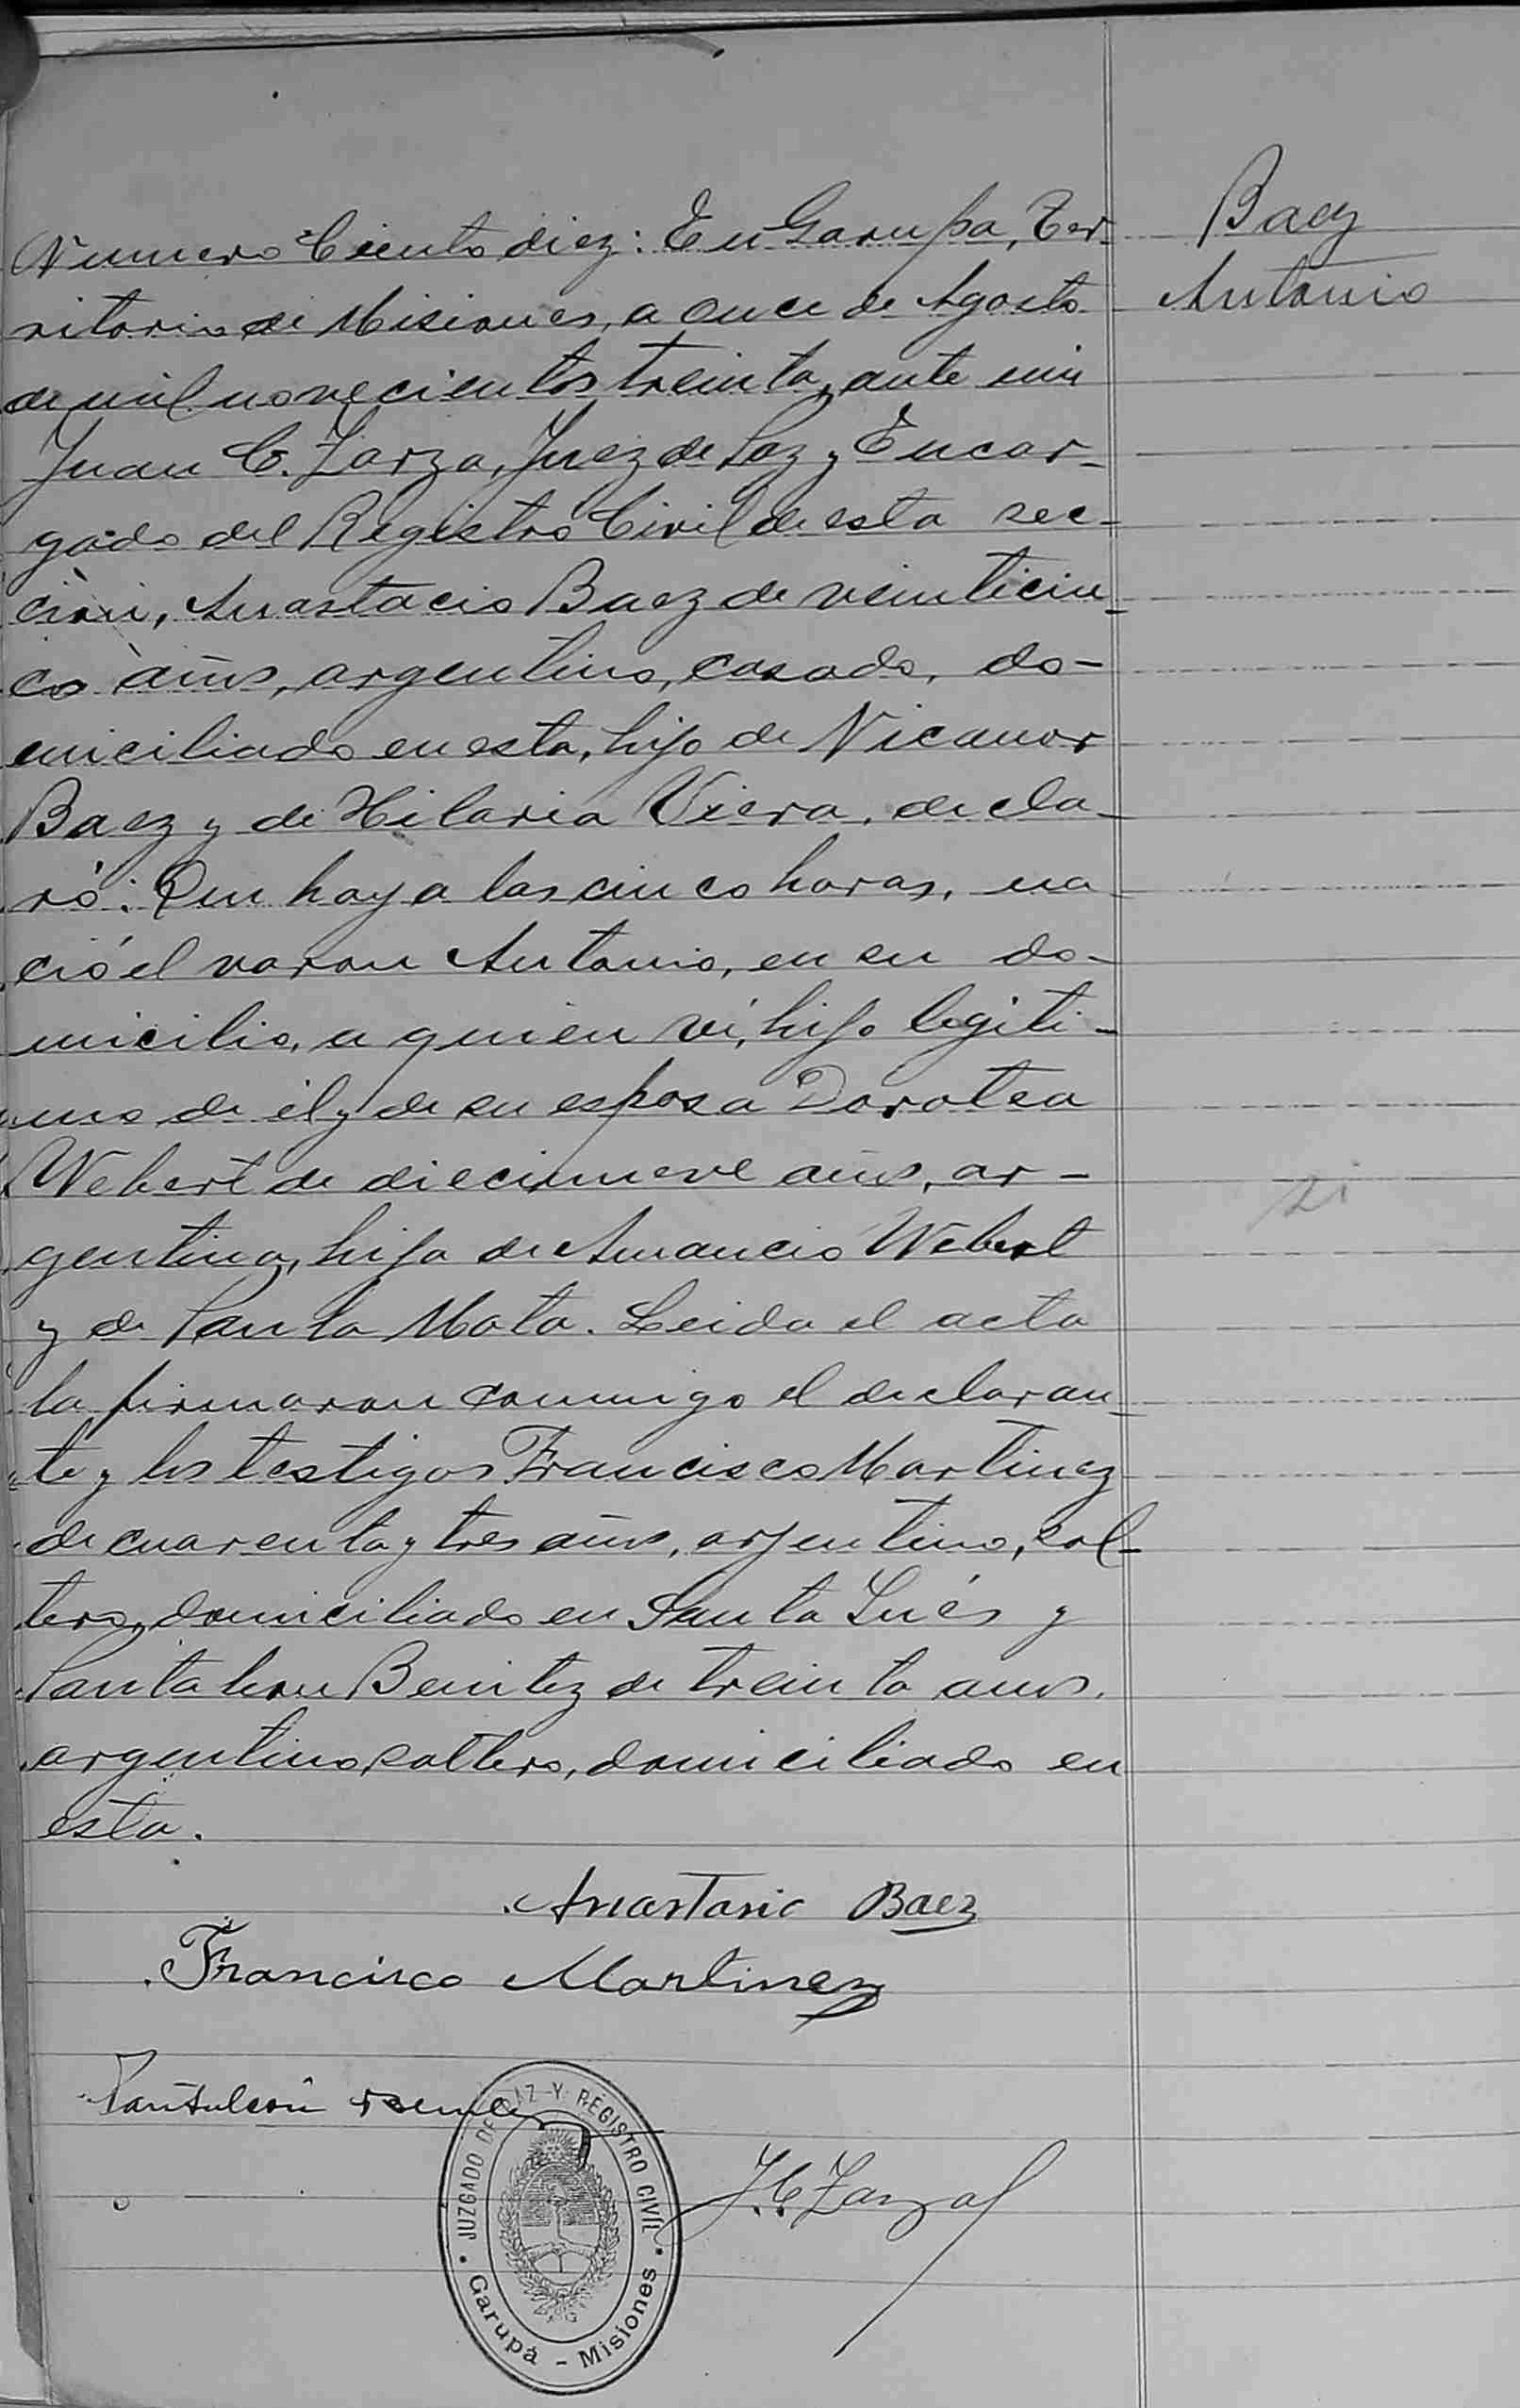 Baez
Antonio
Numero Ciento diez: En Garupa, Ter-
ritorio de Misiones, a once de Agosto
de mil novecientos treinta, ante mi
Juan C. Zarza, Juez de Paz y Encar-
gado del Registro Civil de esta sec-
ción, Anastacio Baez de veinticin-
co años, argentino, casado, do-
miciliado en esta, hijo de Nicanor
Baez y de Hilaria Viera, decla-
ró: Que hoy a las cinco horas, na-
ció el varon Antonio, en su do-
micilio, a quien ví, hijo legiti-
mo de él y de su esposa Dorotea
Webert de diecinueve años, ar-
gentina, hija de Amancio Webert
y de Paula Mata. Leida el acta
la firmaron conmigo el declaran-
te y los testigos Francisco Martinez
de cuarenta y tres años, argentino, sol-
tero, domiciliado en Santa Inés y
Pantaleon Benitez de treinta anos,
argentino, soltero, domiciliado en
esta.
Anastasio Baez
Francisco Martinez
Pantaleon
J.C. Zarza
JUZGADO DE PAZ Y REGISTRO CIVIL
Garupá - Misiones